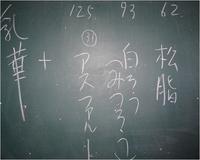 62
松脂
93
白ろう
(みつろう)
125
㉛
アスファルト
+
乳華